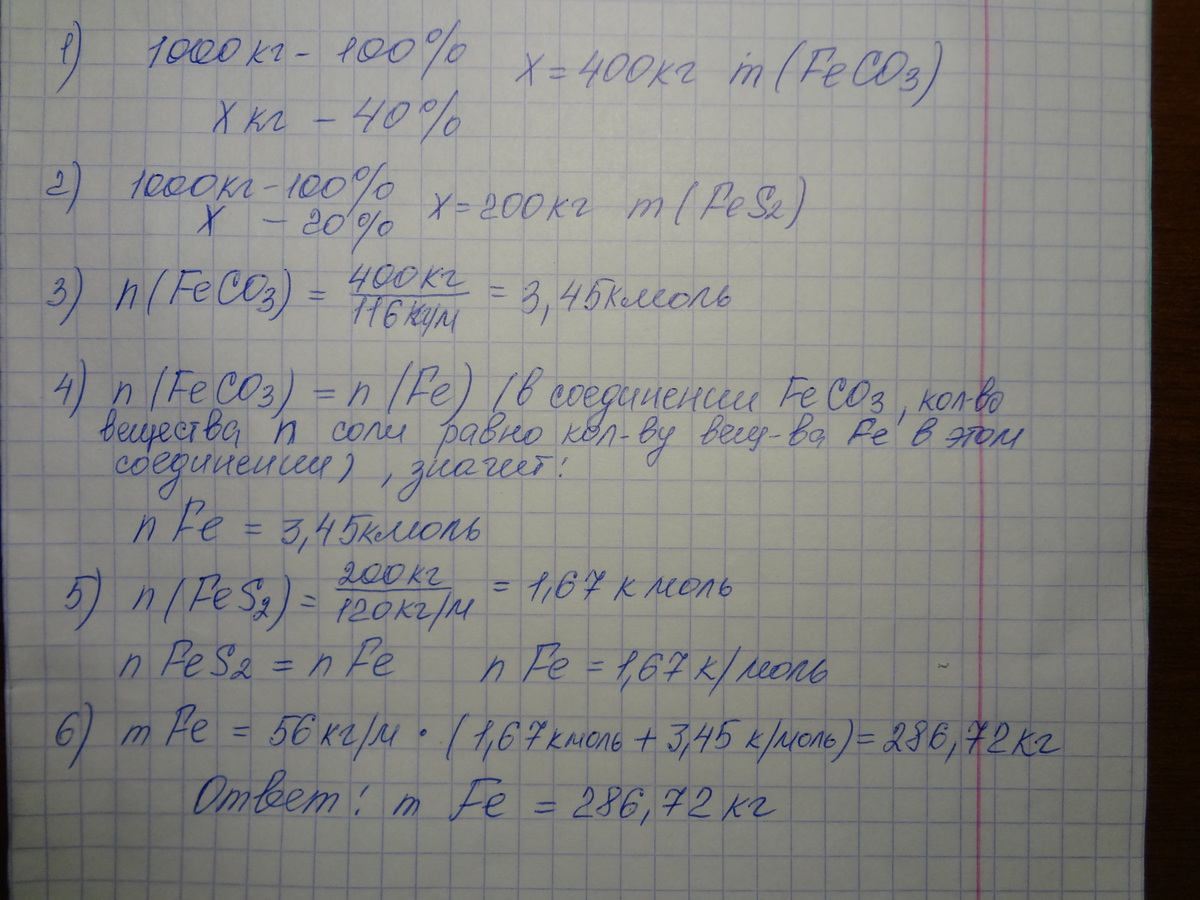 1) 1000кг - 100% x = 400кг m (FeCO3)
Xкг - 40%
2) 1000кг - 100% x = 200кг m (FeS2)
X - 20%
3) n (FeCO3) = 400кг / 116кг/м = 3,45кмоль
4) n (FeCO3) = n (Fe) (в соединении FeCO3, кол-во
вещества n соли равно кол-ву вещ-ва Fe в этом
соединении) , значит:
n Fe = 3,45кмоль
5) n (FeS2) = 200кг / 120кг/м = 1,67 кмоль
n FeS2 = n Fe n Fe = 1,67 к/моль
6) m Fe = 56 кг/м · (1,67кмоль + 3,45 к/моль) = 286,72кг
Ответ: m Fe = 286,72 кг